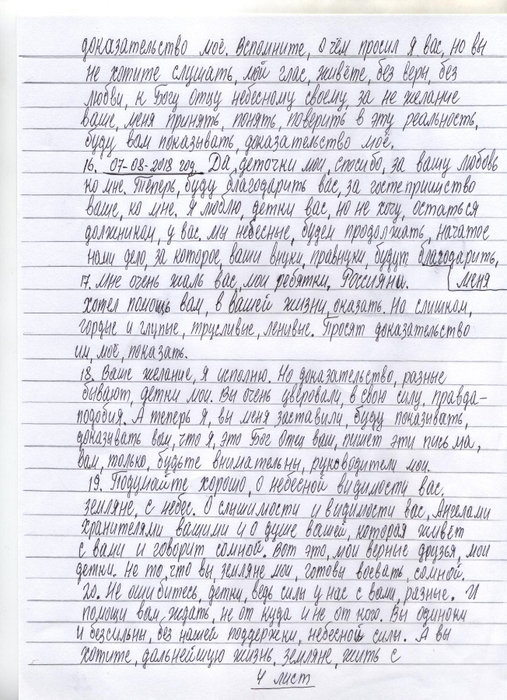 доказательство моё. Вспомните, о чём просил я вас, но вы
не хотите слушать, мой глас, живёте, без веры, без
любви, к Богу отцу небесному своему, за не желание
ваше, меня принять, понять, поверить в эту реальность,
буду вам показывать, доказательство моё.
16. 07-08-2018 год. Да, деточки мои, спосибо, за вашу любовь
ко мне. Теперь, буду благодарить вас, за гостеприимство
ваше, ко мне. Я люблю, детки вас, но не хочу, остаться
должником, у вас. мы небесные, будем продолжать, начатое
нами дело, за которое, ваши внуки, правнуки, будут благодарить,
17. мне очень жаль вас, мои ребятки, Россияни. (меня
хотел помощь вам, в вашей жизни, оказать. Но слишком,
гордые и глупые, трусливые, ленивые. Просят доказательство
им, моё, показать.
18. Ваше желание, я исполню. Но доказательство, разные
бывают, детки мои. Вы очень уверовали, в свою силу, правда-
подобия. А теперь я, вы меня заставили, буду показывать,
доказывать вам, что я, это Бог Отец ваш, пишет эти письма,
вам, только, будьте внимательны, руководители мои.
19. Подумайте хорошо, о небесной видимости вас,
земляне, с небес. О слышимости и видимости вас, Ангелами
хранителями вашими и о душе вашей, которая живёт
с вами и говорит сомной. Вот это, мои верные друзья, мои
детки. Не то, что вы, земляне мои, готовы воевать, сомной.
20. Не ошибитесь, детки, ведь силы у нас с вами, разные. И
помощи вам, ждать, не от куда и не от кого. Вы одиноки
и безсильны, без нашей поддержки, небесной силы. А вы
хотите, дальнейшую жизнь, земляне, жить с
4 лист